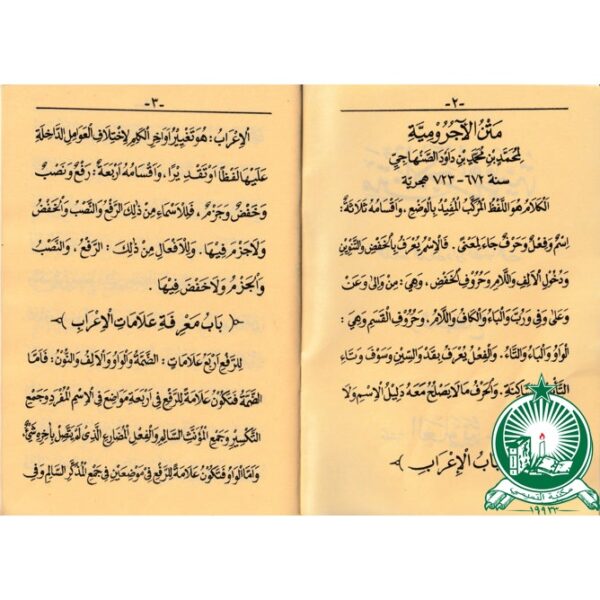 -٢-
مَتْنُ الآجُرُّومِيَّةِ
لِمُحَمَّدِ بْنِ مُحَمَّدِ بْنِ دَاوُدَ الصَّنْهَاجِيِّ
سنة ٦٧٢-٧٢٣ هجرية
الكَلَامُ هُوَ اللَّفْظُ المُرَكَّبُ المُفِيدُ بِالْوَضْعِ، وَأَقْسَامُهُ ثَلَاثَةٌ:
اِسْمٌ وَفِعْلٌ وَحَرْفٌ جَاءَ لِمَعْنًى. فَالِاسْمُ يُعْرَفُ بِالْخَفْضِ وَالتَّنْوِينِ
وَدُخُولِ الْأَلِفِ وَاللَّامِ وَحُرُوفِ الْخَفْضِ، وَهِيَ: مِنْ وَإِلَى وَعَنْ
وَعَلَى وَفِي وَرُبَّ وَالْبَاءُ وَالْكَافُ وَاللَّامُ، وَحُرُوفُ الْقَسَمِ وَهِيَ:
الْوَاوُ وَالْبَاءُ وَالتَّاءُ. وَالْفِعْلُ يُعْرَفُ بِقَدْ وَالسِّينِ وَسَوْفَ وَتَاءِ
وَالْحَرْفُ مَا لَا يَصْلُحُ مَعَهُ دَلِيلُ الْاِسْمِ وَلَا
بَابُ الْإِعْرَابِ
-٣-
الْإِعْرَابُ: هُوَ تَغْيِيرُ أَوَاخِرِ الْكَلِمِ لِاخْتِلَافِ الْعَوَامِلِ الدَّاخِلَةِ
عَلَيْهَا لَفْظًا أَوْ تَقْدِيرًا، وَأَقْسَامُهُ أَرْبَعَةٌ: رَفْعٌ وَنَصْبٌ
وَخَفْضٌ وَجَزْمٌ، فَلِلْأَسْمَاءِ مِنْ ذَلِكَ الرَّفْعُ وَالنَّصْبُ وَالْخَفْضُ
وَلَا جَزْمَ فِيهَا. وَلِلْأَفْعَالِ مِنْ ذَلِكَ: الرَّفْعُ، وَالنَّصْبُ
وَالْجَزْمُ وَلَا خَفْضَ فِيهَا.
﴿ بَابُ مَعْرِفَةِ عَلَامَاتِ الْإِعْرَابِ ﴾
لِلرَّفْعِ أَرْبَعُ عَلَامَاتٍ: الضَّمَّةُ وَالْوَاوُ وَالْأَلِفُ وَالنُّونُ: فَأَمَّا
الضَّمَّةُ فَتَكُونُ عَلَامَةً لِلرَّفْعِ فِي أَرْبَعَةِ مَوَاضِعَ فِي الْاِسْمِ الْمُفْرَدِ وَجَمْعِ
التَّكْسِيرِ وَجَمْعِ الْمُؤَنَّثِ السَّالِمِ وَالْفِعْلِ الْمُضَارِعِ الَّذِي لَمْ يَتَّصِلْ بِآخِرِهِ شَيْءٌ.
وَأَمَّا الْوَاوُ فَتَكُونُ عَلَامَةً لِلرَّفْعِ فِي مَوْضِعَيْنِ فِي جَمْعِ الْمُذَكَّرِ السَّالِمِ وَفِي